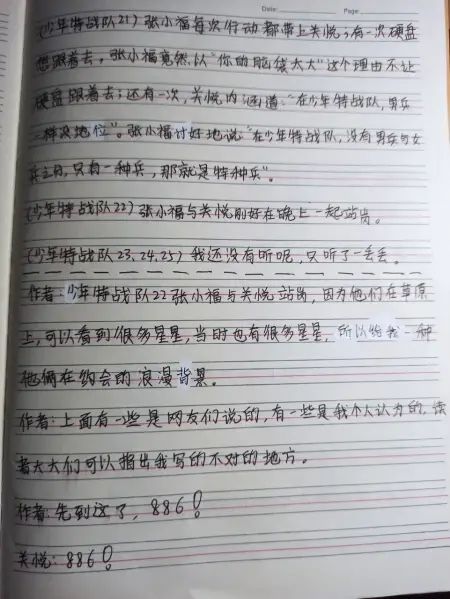 Date:    Page:
(少年特战队21)张小福每次行动都带上关悦;有一次硬盘
想跟着去,张小福竟然以"你的脑袋太大"这个理由不让
硬盘跟着去;还有一次,关悦内涵道:"在少年特战队,男兵
一样没地位"。张小福讨好地说"在少年特战队,没有男兵与女
兵之分,只有一种兵,那就是特种兵"。
(少年特战队22)张小福与关悦刚好在晚上一起站岗。
(少年特战队23、24、25)我还没有听呢,只听了一丢丢。
作者:少年特战队22张小福与关悦站岗,因为他们在草原
上,可以看到很多星星,当时也有很多星星,所以给我一种
他俩在约会的浪漫背景。
作者:上面有一些是网友们说的,有一些是我个人认为的,读
者大大们可以指出我写的不对的地方。
作者:先到这了,886!
关悦:886!